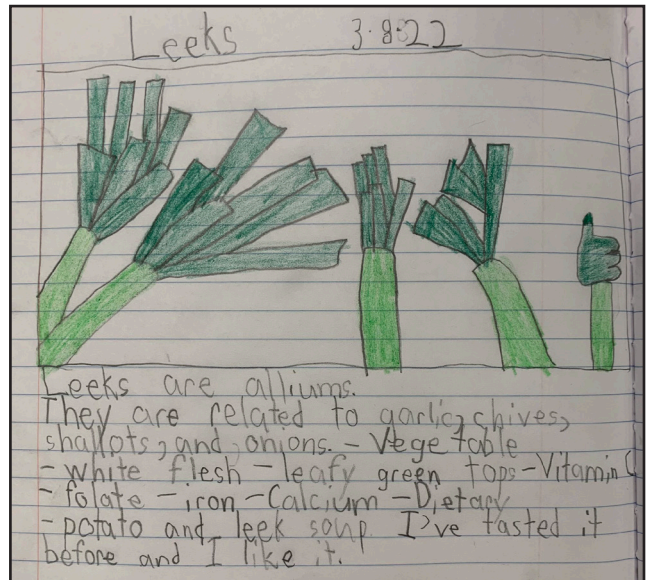 Leeks 3.8.22
Leeks are alliums.
They are related to garlic, chives,
shallots, and, onions. - Vegetable
- white flesh - leafy green tops - Vitamin C
- folate - iron - Calcium - Dietary
- potato and leek soup. I've tasted it
before and I like it.